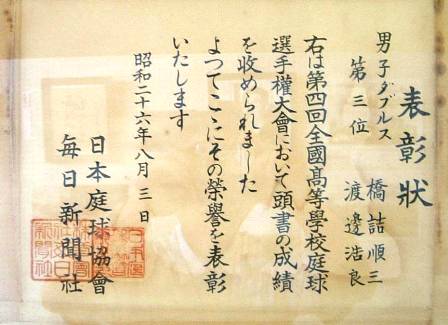 表彰状
男子ダブルス
第三位
橋詰順三
渡邊浩良
右は第四回全國高等學校庭球
選手權大會において頭書の成績
を收められました
よつてここにその榮譽を表彰
いたします
昭和二十六年八月三日
日本庭球協會
毎日新聞社